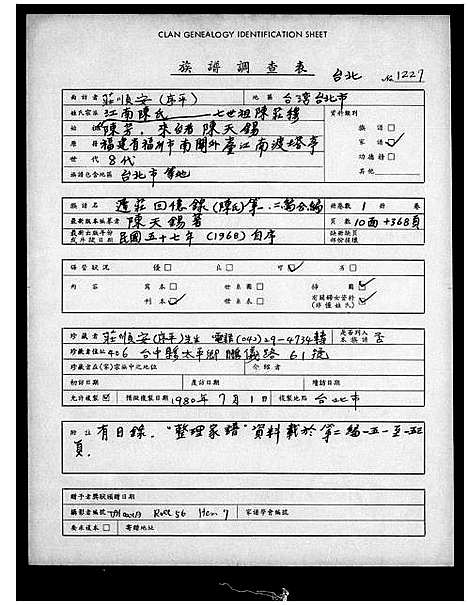 CLAN GENEALOGY IDENTIFICATION SHEET
族譜調查表 台北 No 1227
面訪者 莊順安 (序平) 地區 台灣台北市
姓氏宗派 江南陳氏 七世祖陳莊 資料類別
始祖 陳芳, 來台者 陳天錫 族譜 □
原籍 福建省福州市南關外臺江南渡塔亭 家譜
世代 8代 功德榜 □
族譜包含地區 台北市等地 其他
族譜名 遲莊回憶錄 (陳氏) 第一.二篇合編 冊卷數 1 冊 卷
最新版本編纂者 陳天錫著 頁數 10面+368頁
最新出版年份或月狀日期 民國五十七年 (1968) 自序 缺冊缺頁部份採補
保管狀況 優 □ 良 □ 可 □ 劣 □
內容 寫本 □ 世系圖 □ 掃圖 □
刊本 □ 世系表 □ 有關婦女資料 (非僅姓氏)
珍藏者 莊順安 (序平) 先生 電話 (042) 29-4734轉 是否列入本族譜 否
珍藏者住址 406 台中縣太平鄉鵬儀路 61號
珍藏者在(家)宗族中之地位 介紹者
初訪日期 座訪日期 續訪日期
允許複製 預做複製日期 1980年7月1日 複製地點 台北市
附註 有目錄. "整理家譜" 資料載於第二編-五一至-五三
頁.
贈予者獎狀頒贈日期
攝影者編號 Roll 56 Item 7 家譜學會編號
要求複本 □ 寄贈地址